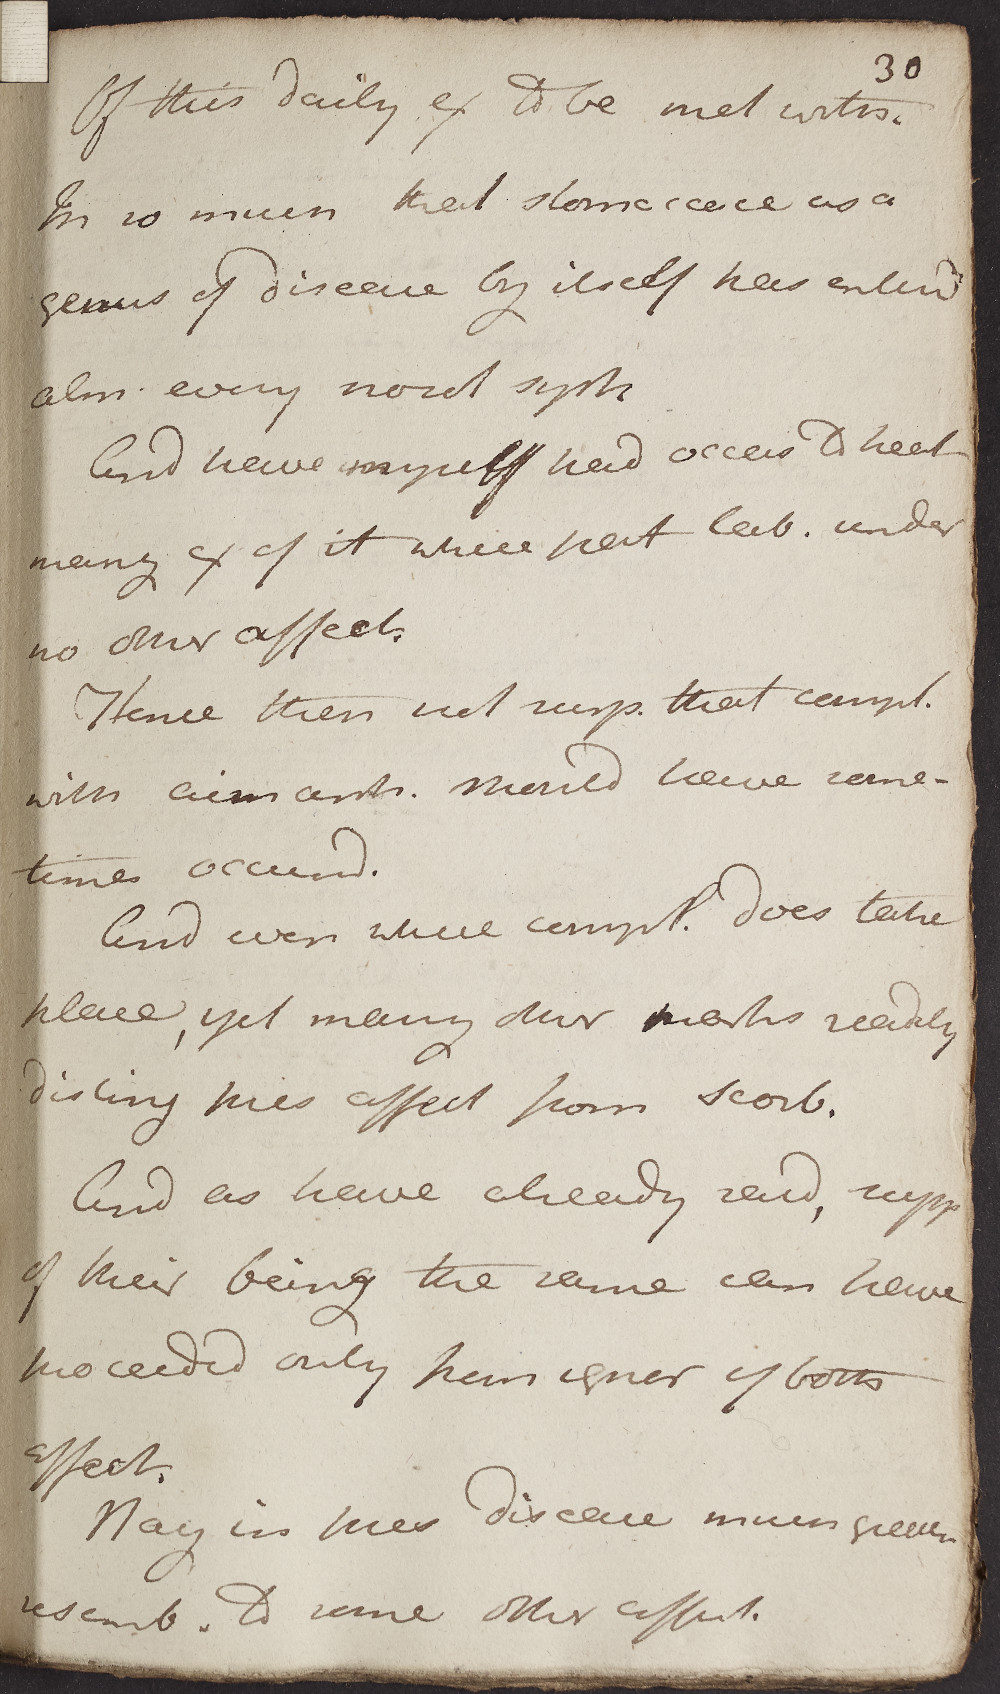 30
Of this daily ex to be met with.
In so much that stomacace as a
genus of disease by itself has enterd
alm. every nosol syst.
And have myself had occas to treat
many ex of it where pat lab. under
no other affect.
Hence then not surp. that compl.
with should have some-
times occurrd.
And even where compl. does take
place, yet many other marks readily
disting this affect from Scorb.
And as have already said, supp
of their being the same can have
proceeded only from ignor of both
affect.
Nay in this disease much greater
resemb. to some other affect.